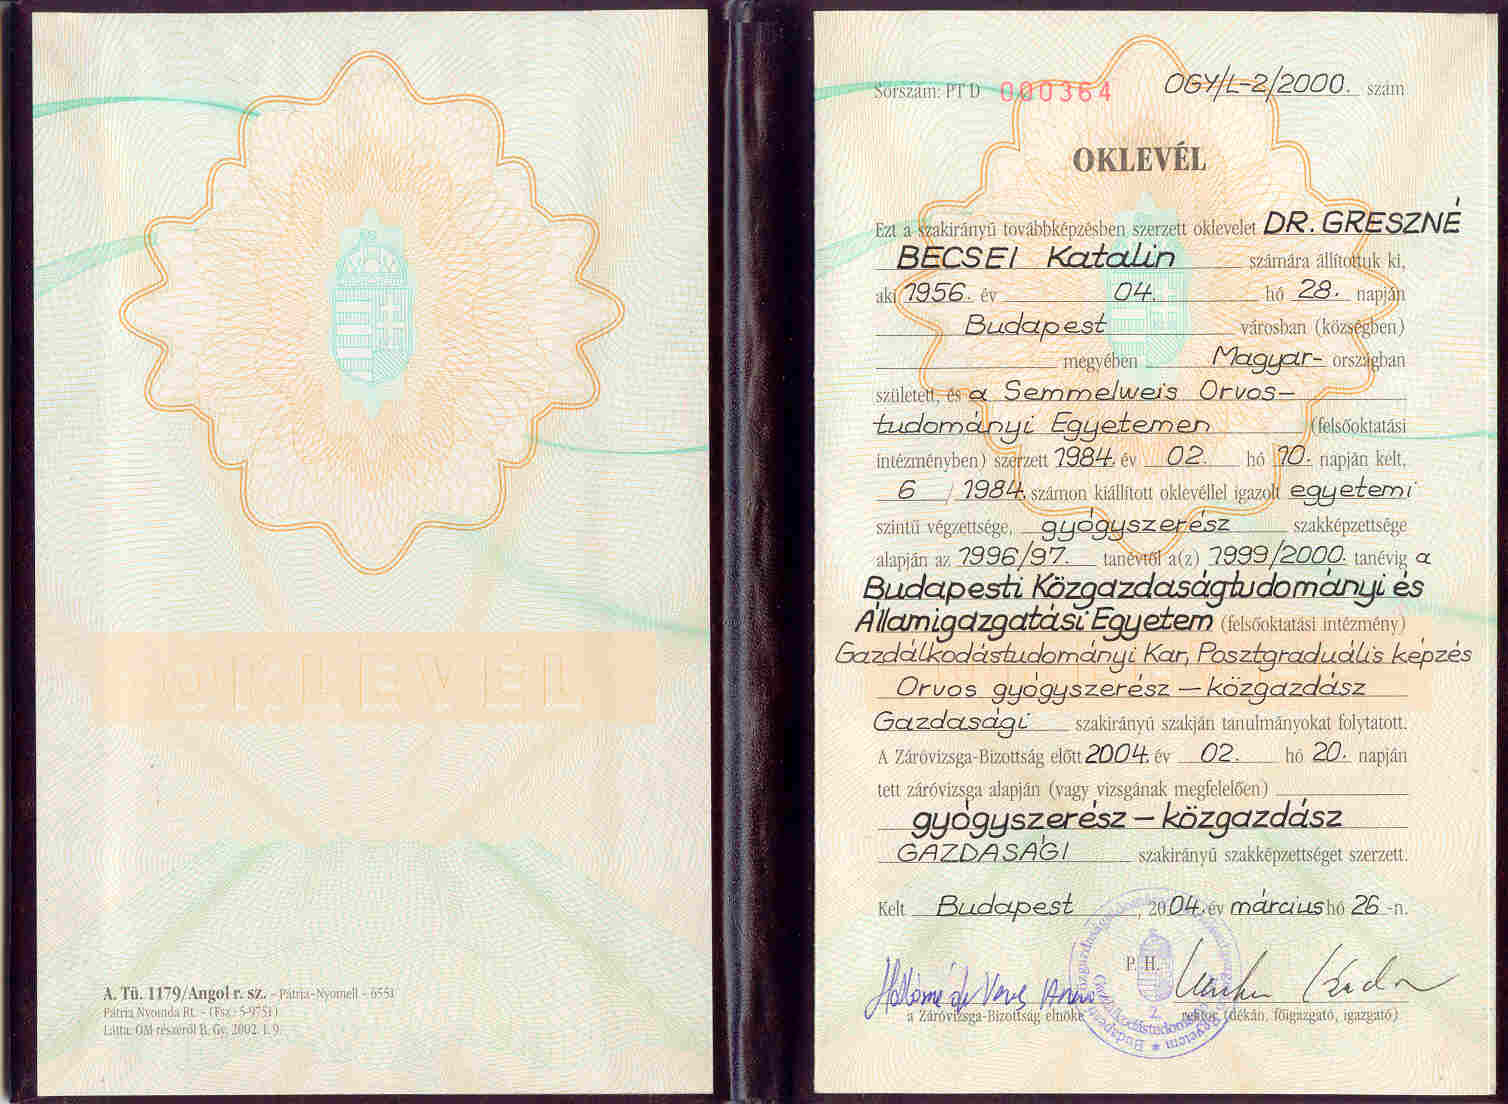 OKLEVÉL
A. Tü. 1179/Angol r. sz. – Pátria-Nyomell – 6551
Pátria Nyomda Rt. – (Fsz.: 5-9751)
Látta: OM részéről B. Gy. 2002. 1. 9.
Sorszám: PT D 000364 OGY/L-2/2000. szám
OKLEVÉL
Ezt a szakirányú továbbképzésben szerzett oklevelet DR. GRESZNÉ
BECSEI Katalin számára állítottuk ki,
aki 1956. év 04. hó 28. napján
Budapest városban (községben)
megyében Magyar- országban
született, és a Semmelweis Orvos-
tudományi Egyetemen (felsőoktatási
intézményben) szerzett 1984. év 02. hó 10. napján kelt,
6 / 1984. számon kiállított oklevéllel igazolt egyetemi
szintű végzettsége, gyógyszerész szakképzettsége
alapján az 1996/97. tanévtől a(z) 1999/2000. tanévig a
Budapesti Közgazdaságtudományi és
Államigazgatási Egyetem (felsőoktatási intézmény)
Gazdálkodástudományi Kar, Posztgraduális képzés
Orvos gyógyszerész – közgazdász
Gazdasági szakirányú szakján tanulmányokat folytatott.
A Záróvizsga-Bizottság előtt 2004. év 02. hó 20. napján
tett záróvizsga alapján (vagy vizsgának megfelelően)
gyógyszerész – közgazdász
GAZDASÁGI szakirányú szakképzettséget szerzett.
Kelt Budapest, 2004. év március hó 26 -n.
P. H.
a Záróvizsga-Bizottság elnöke rektor (dékán, főigazgató, igazgató)